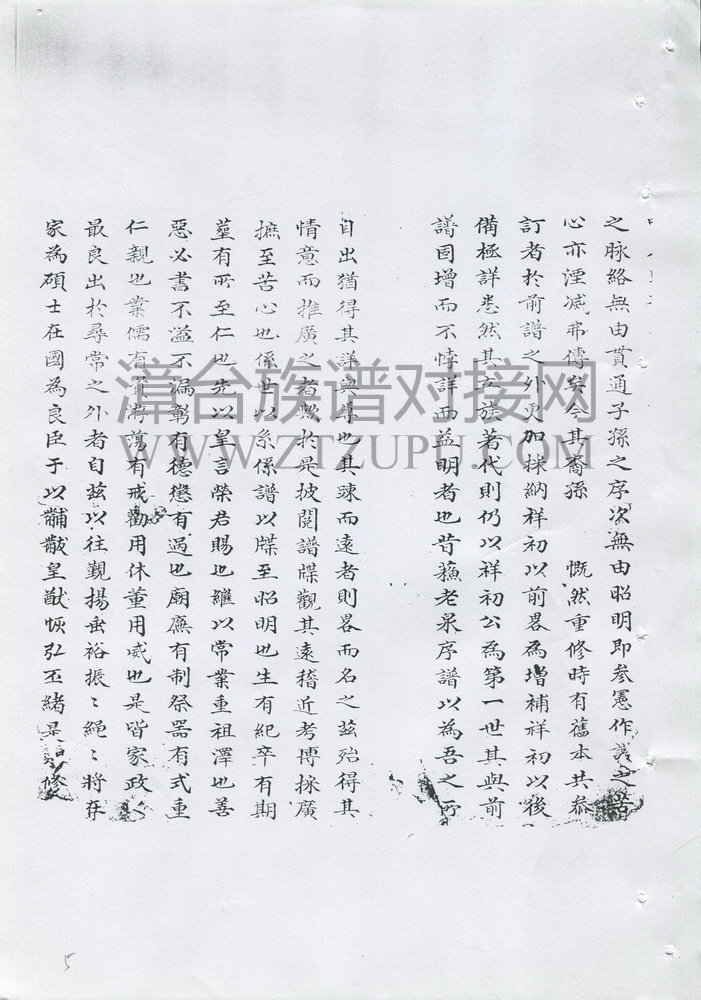 之脉絡無由貫通子孫之序次無由昭明即參憲作譜之苦
心亦湮滅弗傳矣今其裔孫 慨然重修時有舊本共參
訂者於前譜之外更加採納祥初以前畧為增補祥初以後
備極詳悉然其立族著代則仍以祥初公為第一世其與前
譜固增而不悖詳而益明者也昔蘓老泉序譜以為吾之所
自出猶得其詳與尊也其踈而遠者則畧而名之茲殆得其
情意而推廣之者與於是披閱譜牒觀其遠稽近考博採廣
摭至苦心也係世以系係譜以牒至昭明也生有紀卒有期
塋有所至仁也先以皇言榮君賜也繼以常業重祖澤也善
惡必書不溢不漏彰有德懲有過也廟廡有制祭器有式重
仁親也業儒有資游蕩有戒勸用休董用威也是皆家政之
最良出於尋常之外者自茲以往覲揚垂裕振〻繩〻將在
家為碩士在國為良臣于以黼黻皇猷恢弘丕緒是 修
漳台族谱对接网
WWW.ZTZUPU.COM
5